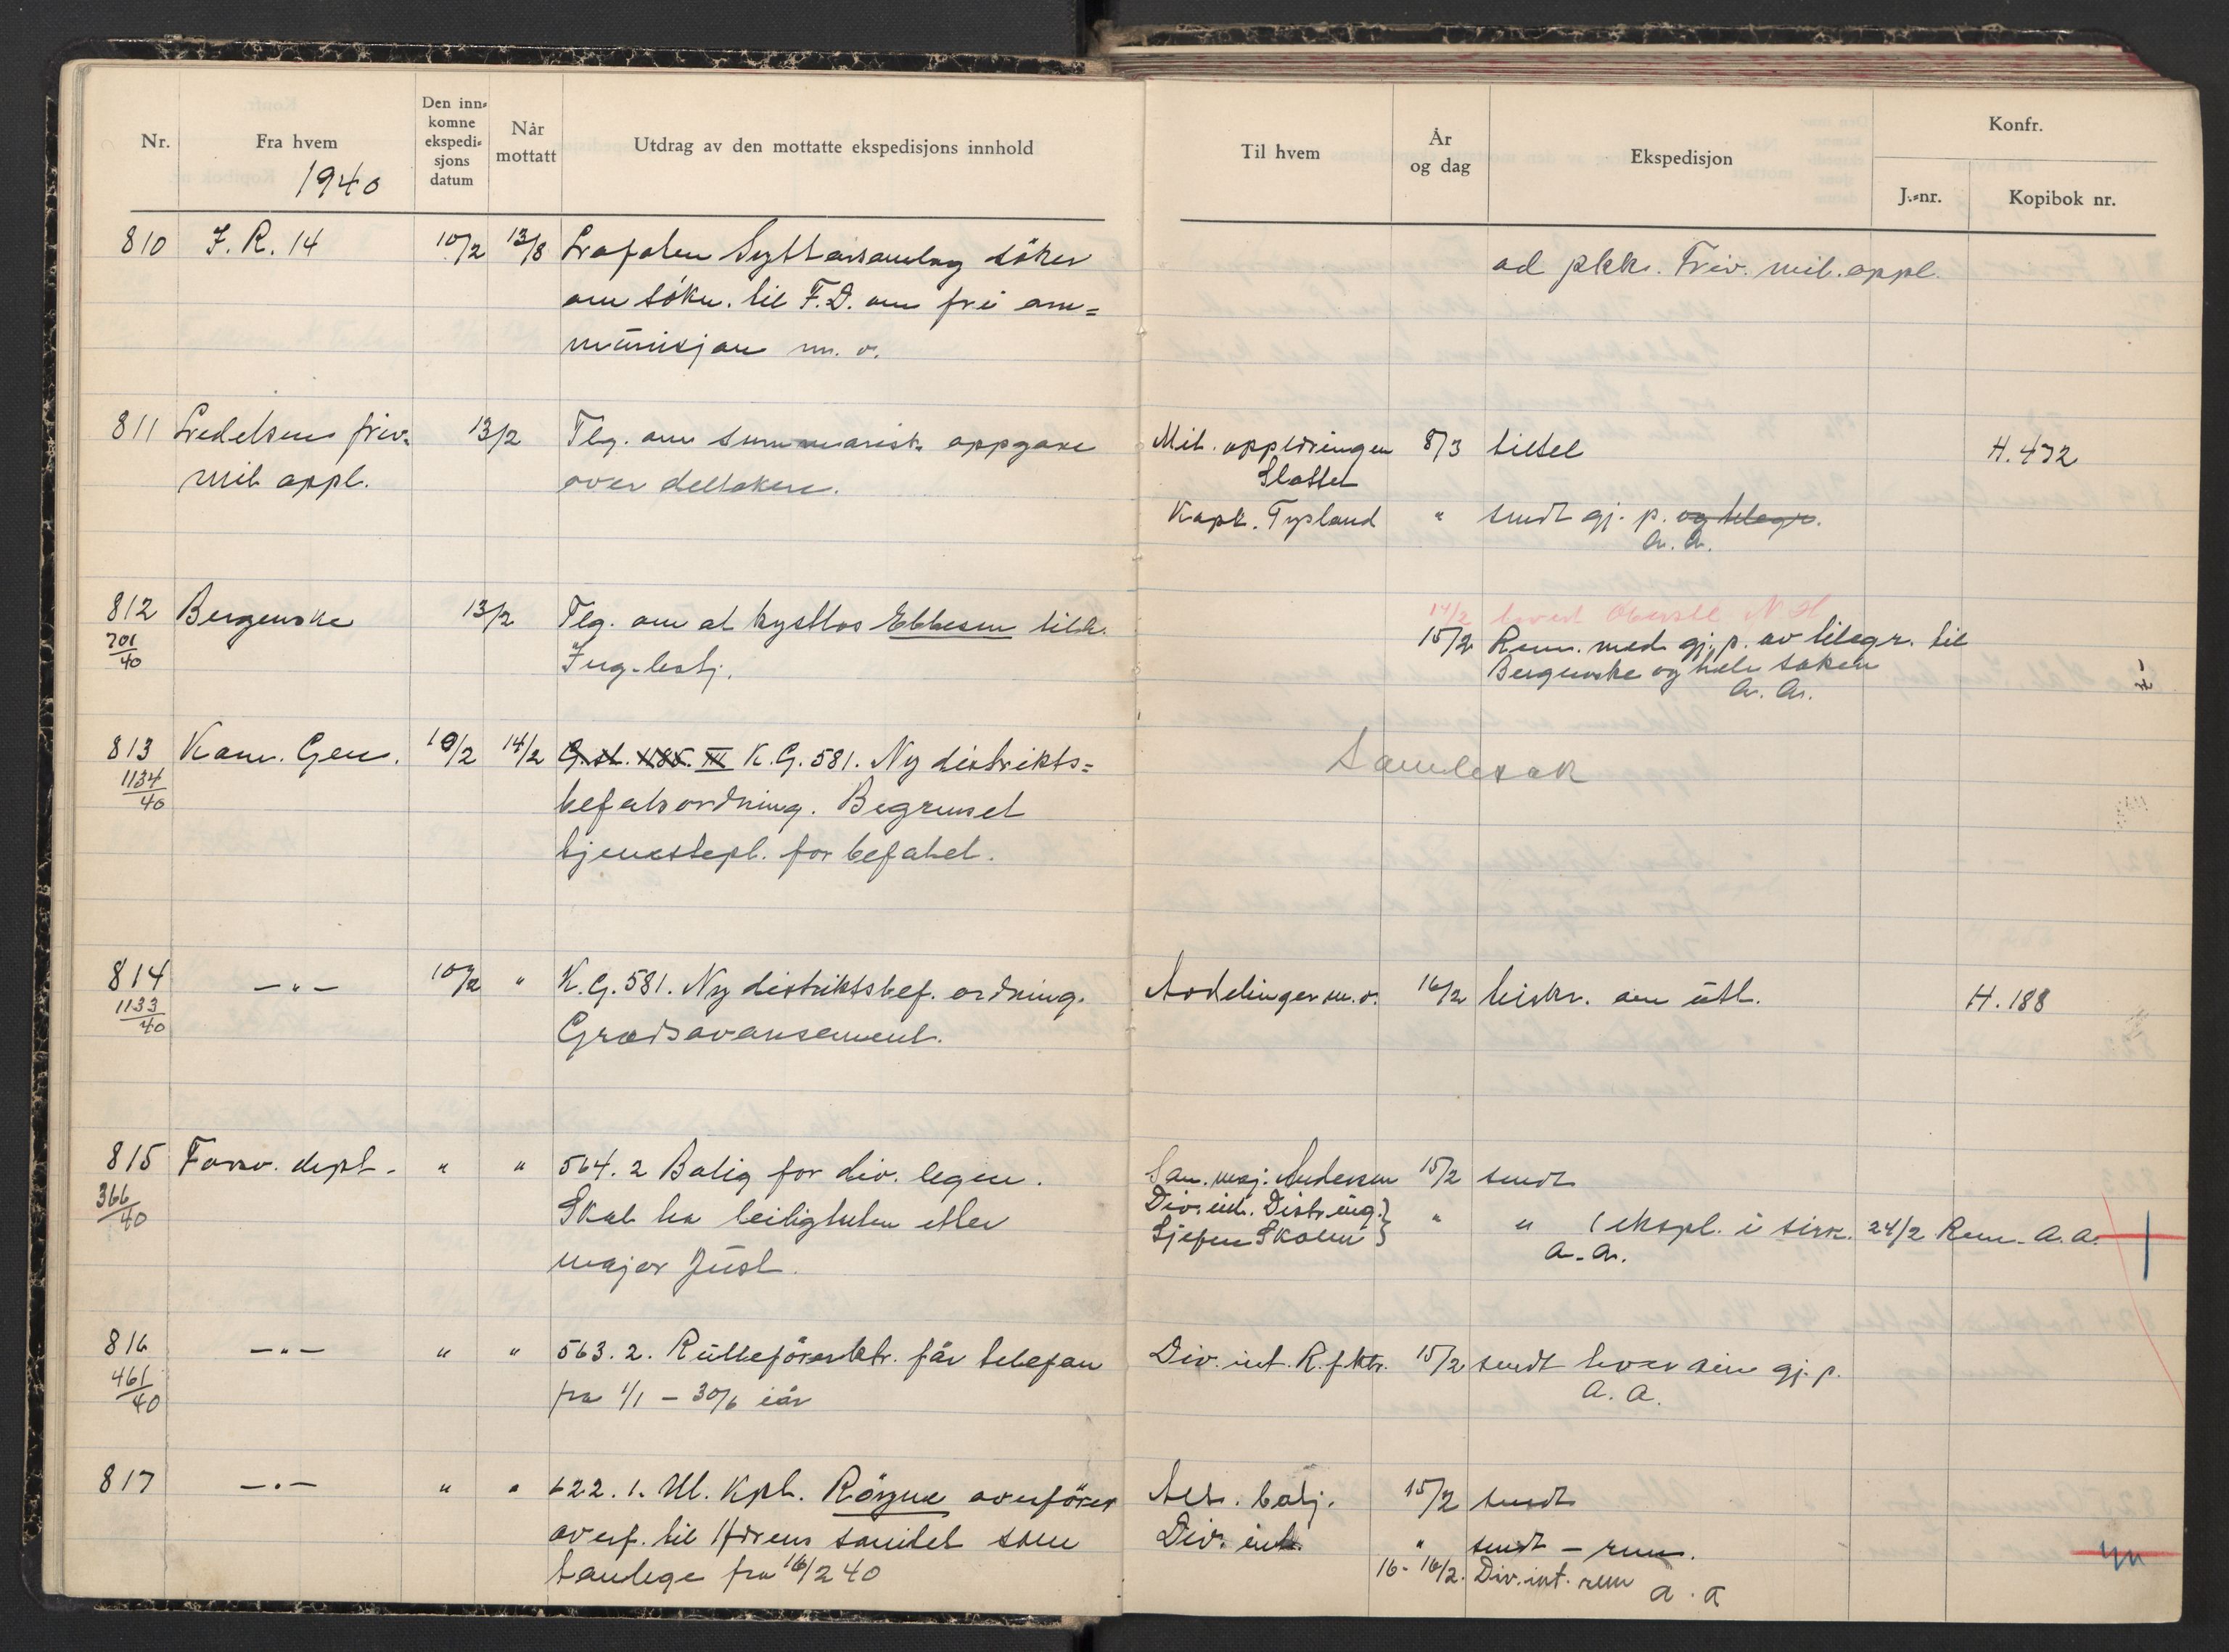 Nr.
Fra hvem
1940
Den inn-
komne
ekspedi-
sjons
datum
Når
mottatt
Utdrag av den mottatte ekspedisjons innhold
Til hvem
År
og dag
Ekspedisjon
Konfr.
J.-nr.
Kopibok nr.
810 J. R. 14 10/2 13/8 søker
om søkn. til F.D. om fri am=
munisjon m. v.
ad pkk. Friv. mil. oppl.
811 Ledelsen friv. 13/2 Tlg. om summarisk oppgave
mil oppl. over deltakere.
Mil. opplæringen 8/3 tiltel H. 472
Slottet
Kapt. Tysland " sendt gj. p. og telegr.
a. a.
812 Bergenske 13/2 Tlg. om at kystlos Ebbesen tilk.
701/40
Ing. batj.
14/2 Oberstl N H
15/2 Rem. med gj. p. av telegr. til
Bergenske og hele saken
a. a.
813 Kom. Gen. 10/2 14/2 G. st. III K. G. 581. Ny distrikts=
1134/40
befalsordning. Begrenset
tjenestepl. for befalet.
Samlesak
814 — " — 10/2 " K. G. 581. Ny distriktsbef. ordning.
1133/40
Gradsavansement.
Avdelinger m. v. 16/2 om utt. H. 188
815 Forsv. dept. " " 564. 2 Bolig for div. legen.
366/40
Skal ha leiligheten etter
major Just.
San. maj. Andersen 15/2 sendt
Div. int. Distr. ing. }
Sjefen Skolen } " " (ekspl. i sirk. 24/2 Rem. a. a.
a. a.
816 — " — " " 563. 2. Rulleførerktr. får telefon
461/40
fra 1/1 – 30/6 iår
Div. int. R. f. ktr. 15/2 sendt hver sin gj. p.
a. a.
817 — " — " " 622. 1. Ul. Kpl. overfører
overf. til Hærens sanitet som
tanlege fra 16/2 40
Art. batj. 15/2 sendt
Div. int. " sendt – rem.
16 - 16/2. Div. int. rem a. a